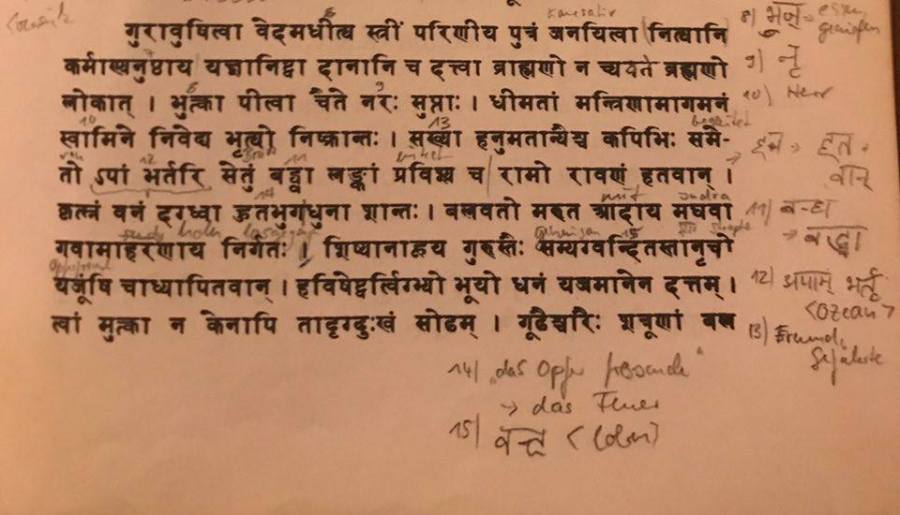 गुरावुषित्वा वेदमधीत्य स्त्रीं परिणीय पुत्रं जनयित्वा नित्यानि
कर्माण्यनुष्ठाय यज्ञानिष्ट्वा दानानि च दत्त्वा ब्राह्मणो न च्यवते ब्रह्मणो
लोकात् । भुक्त्वा पीत्वा चैते नरः सुप्ताः । धीमतां मन्त्रिणामागमनं
स्वामिने निवेद्य भृत्यो निष्क्रान्तः । सख्या हनुमतान्यैश्च कपिभिः समे-
तो ऽपां भर्तरि सेतुं बद्ध्वा लङ्कां प्रविश्य च रामो रावणं हतवान् ।
कृत्स्नं वनं दग्ध्वा हुतभुगधुना शान्तः । बलवतो मरुत आदाय मघवा
गवामाहरणाय निर्गतः । शिष्यानाहूय गुरुस्तैः सम्यग्वन्दितस्तानृचो
यजूंषि चाध्यापितवान् । हविषेष्टवर्त्विग्भ्यो भूयो धनं यजमानेन दत्तम् ।
त्वां मुक्त्वा न केनापि तादृग्दुःखं सोढम् । गूढैश्चरैः शत्रूणां बल
8) भुज् = essen genießen
9) नृ
10) Herr
हन् → हत-
वान्
11) बन्ध्
→ बद्ध्वा
12) अपाम् भर्तृ
<Ozean>
13) Freund, Gefährte
14) "das Opfer fressende"
→ das Feuer
15) वन्द् <loben>